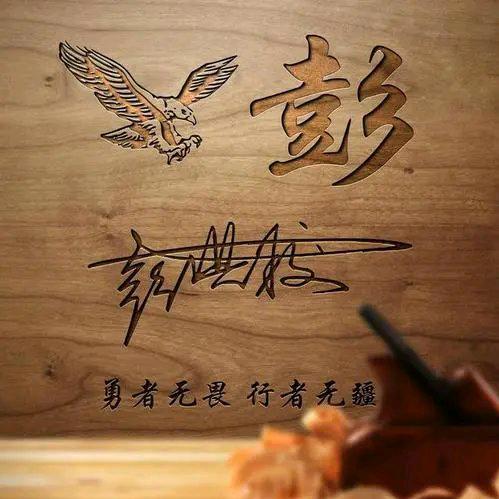 彭
彭
勇者无畏 行者无疆